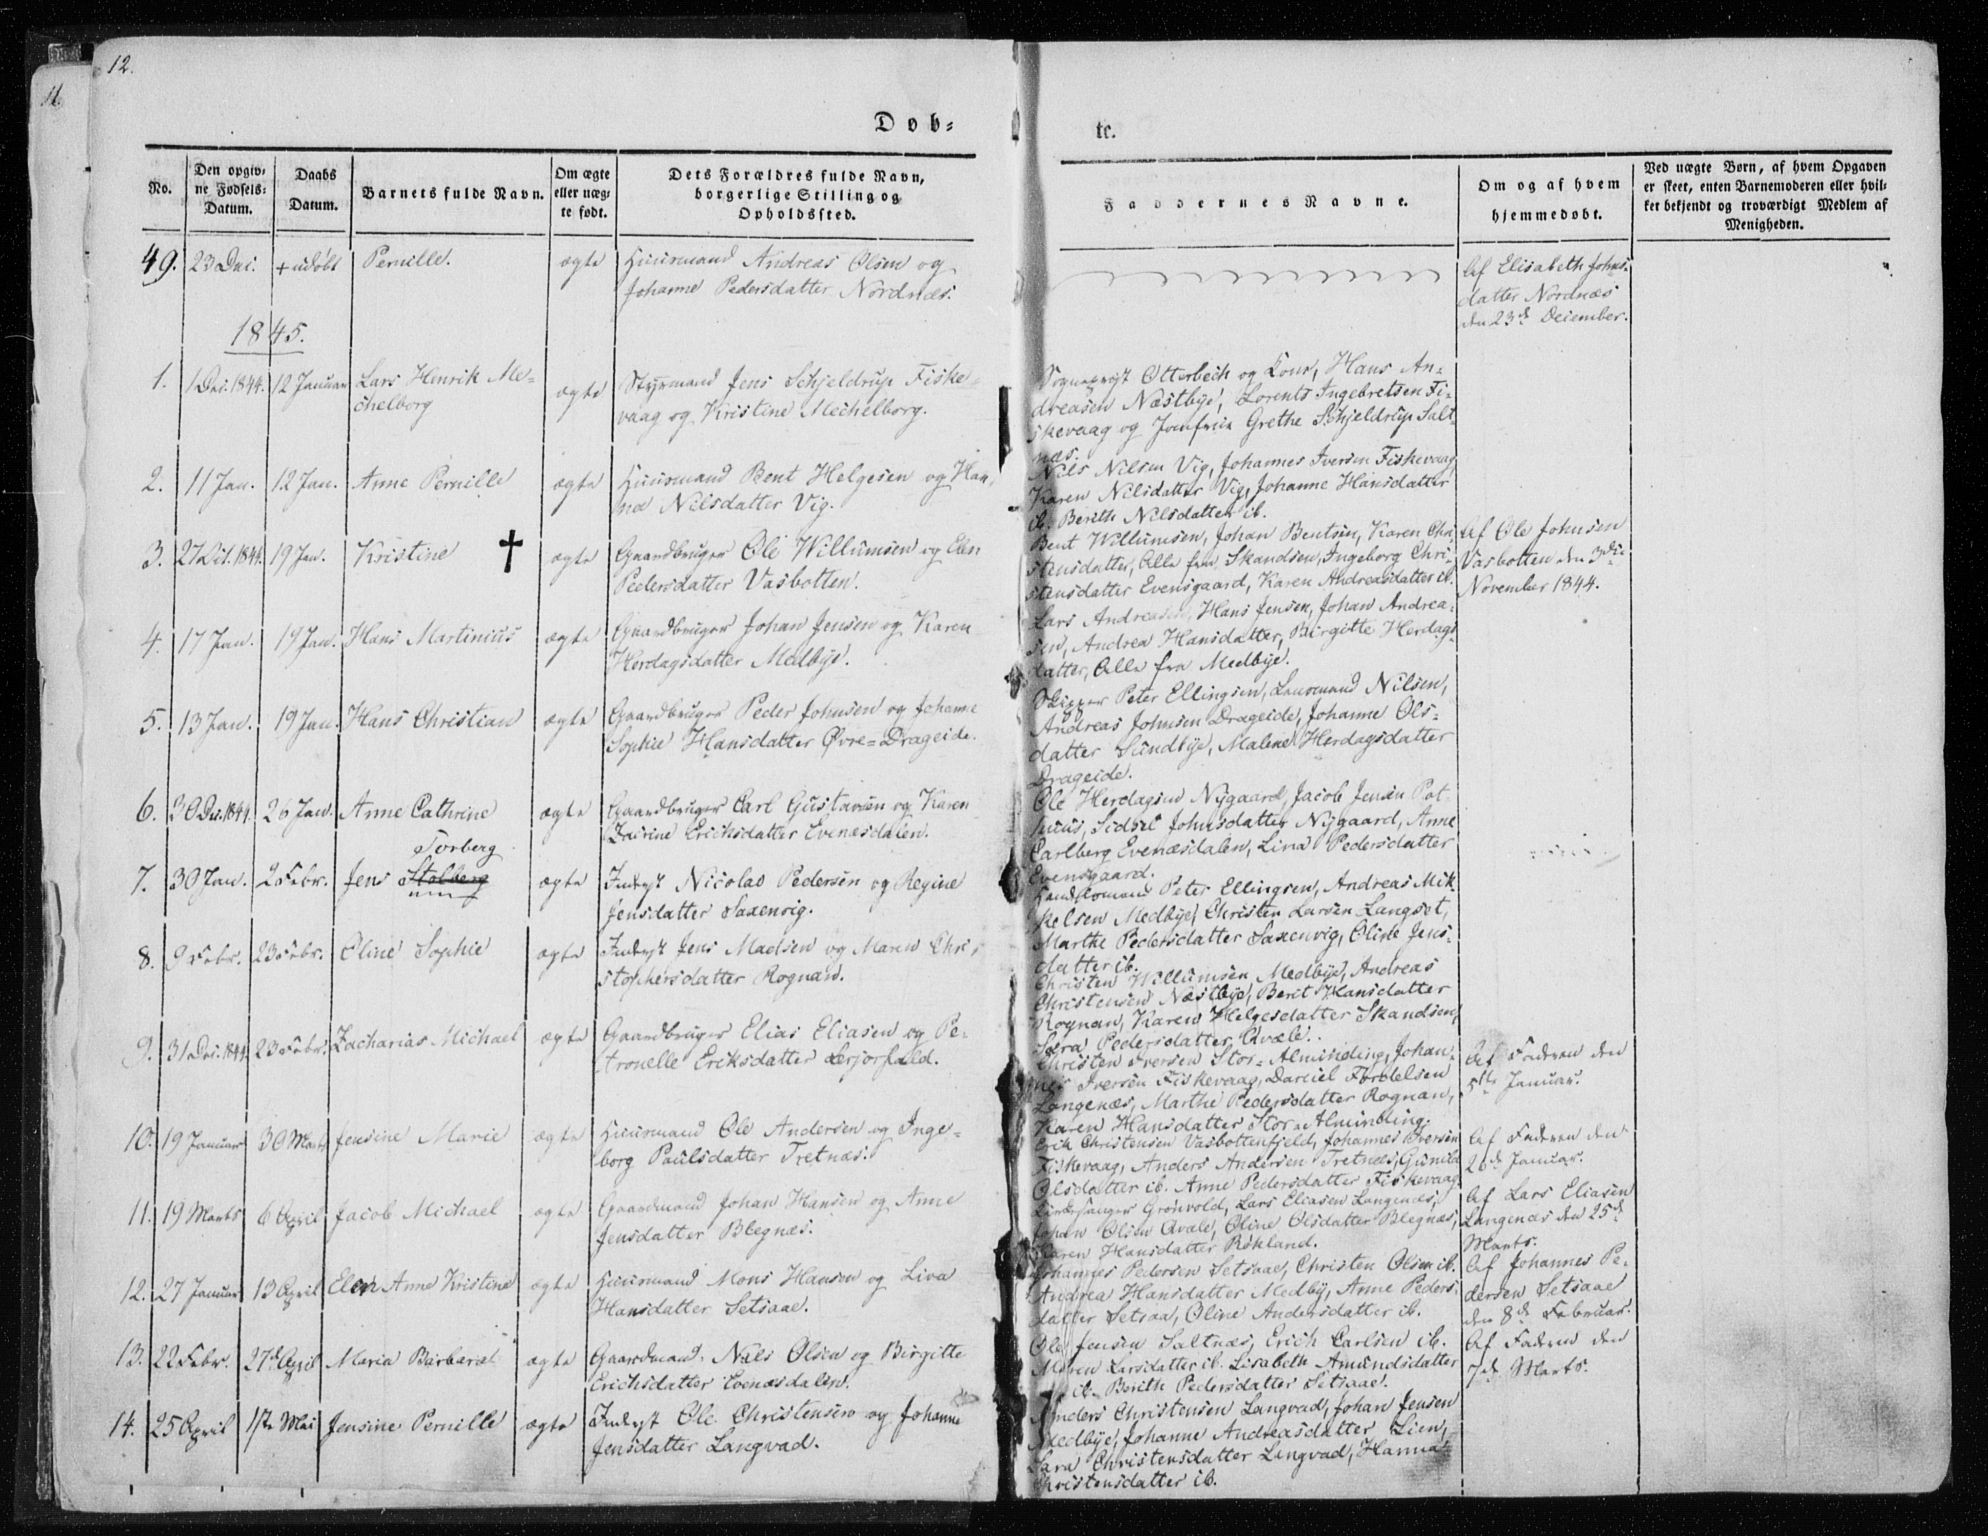 12.
11.
Døb=
te.
No.
Den opgiv=
ne Fødsels=
Datum.
Daabs
Datum.
Barnets fulde Navn.
Om ægte
eller uæg=
te født.
Dets Forældres fulde Navn,
borgerlige Stilling og
Opholdssted.
Faddernes Navne.
Om og af hvem
hjemmedøbt.
Ved uægte Børn, af hvem Opgaven
er skeet, enten Barnemoderen eller hvil=
ket bekjendt og troværdigt Medlem af
Menigheden.
49. 23 Dec. + udøbt Pernille. ægte Huusmand Andreas Olsen og
Johanne Pedersdatter Nordnæs.
Af Elisabeth Johns=
datter Nordnæs
den 23de December.
1845.
1. 1 Dec. 1844. 12 Januar Lars Henrik Me=
chelborg
ægte Styrmand Jens Schjeldrup Fiske=
vaag og Kristine Mechelborg.
Sognepræst Otterbech og Kone, Hans An=
dreasen Næstbye, Lorents Ingebretsen Fi=
skevaag og Jomfrue Grethe Schjeldrup Salt=
næs.
2. 11 Jan. 12 Jan. Anne Pernille ægte Huusmand Bent Helgesen og Han=
na Nilsdatter Vig.
Nils Nilsen Vig, Johannes Iversen Fiskevaag
Karen Nilsdatter Vig, Johanne Hansdatter
ib. Berith Nilsdatter ib.
3. 27 1844. 19 Jan. Kristine † ægte Gaardbruger Ole Willumsen og Elen
Pedersdatter Vasbotten.
Bent Willumsen, Johan Bentsen, Karen Chri=
stensdatter, Alle fra Skandsen, Ingeborg Chri=
stensdatter Evensgaard, Karen Andreasdatter ib.
Af Ole Johnsen
Vasbotten den 3die
November 1844.
4. 17 Jan. 19 Jan. Hans Martinius ægte Gaardbruger Johan Jensen og Karen
Herdagsdatter Medbye.
Lars Andreasen, Hans Jensen, Johan Andrea=
sen, Andrea Hansdatter, Birgitte Herdags=
datter, Alle fra Medbye.
5. 13 Jan. 19 Jan. Hans Christian ægte Gaardbruger Peder Johnsen og Johanne
Sophie Hansdatter Øvre=Drageide.
Skipper Peter Ellingsen, Lensmand Nilsen,
Andreas Johnsen Drageide, Johanne Ols=
datter Sundbye, Malene Herdagsdatter
Drageide.
6. 30 Dec. 1844. 26 Jan. Anne Cathrine ægte Gaardbruger Carl Gustavsen og Karen
Erichsdatter Evenæsdalen.
Ole Herdagsen Nygaard, Jacob Jensen Pot=
huus, Sidsel Johnsdatter Nygaard, Anne
Carlberg Evenæsdalen, Lina Pedersdatter
Evensgaard.
7. 30 Jan. 2 Febr. Jens Stolberg Torberg ægte Inderst Nicolas Pedersen og Regine
Jensdatter Saxenvig.
Handelsmand Peter Ellingsen, Andreas Mik=
kelsen Medbye, Christen Larsen Langset,
Marthe Pedersdatter Saxenvig, Oline Jens=
datter ib.
8. 9 Febr. 23 Febr. Oline Sophie ægte Inderst Jens Madsen og Maren Chri=
stophersdatter Rognan.
Christen Willumsen Medbye, Andreas
Christensen Næstbye, Berit Hansdatter
Rognan, Karen Helgesdatter Skandsen,
Sara Pedersdatter Qvæle.
9. 31 Dec. 1844. 23 Febr. Zacharias Michael ægte Gaardbruger Elias Eliasen og Pe=
tronelle Eriksdatter
Christen Iversen Stor=Alminding, Johan=
nes Iversen Fiskevaag, Daniel
Langenæs, Marthe Pedersdatter Rognan,
Karen Hansdatter Stor=Alminding.
Af Faderen den
5te Januar.
10. 19 Januar 30 Marts Jensine Marie ægte Huusmand Ole Andersen og Inge=
borg Paulsdatter Tretnæs.
Erik Christensen Vasbottenfjeld, Johannes Iversen
Fiskevaag, Anders Andersen Tretnæs, Gunild
Olsdatter ib. Anne Pedersdatter Fiskevaag.
Af Faderen den
20de Januar.
11. 19 Marts 6 April Jacob Michael ægte Gaardmand Johan Hansen og Anne
Jensdatter Blegnæs.
Kirkesanger Grønvold, Lars Eliasen Langenæs,
Johan Olsen Qvale, Oline Olsdatter Blegnæs,
Karen Hansdatter Røkland.
Af Lars Eliasen
Langenæs den 25de
Marts.
12. 27 Januar 13 April Elen Anne Kristine ægte Huusmand Mons Hansen og Liva
Hansdatter Setsaae.
Johannes Pedersen Setsaae, Christen Olsen ib.
Andrea Hansdatter Medby, Anne Peders=
datter Setsaa, Oline Andersdatter ib.
Af Johannes Pe=
dersen Setsaae
den 8de Februar.
13. 22 Febr. 27de April Maria Barbara ægte Gaardmand Nils Olsen og Birgitte
Erichsdatter Evenæsdalen.
Ole Jensen Saltnæs, Erich Carlsen ib.
Maren Larsdatter ib. Lisabeth Amundsdatter
ib. Berith Pedersdatter Setsaae.
Af Faderen den
7de Marts.
14. 25 April 1ste Mai Jensine Pernille ægte Inderst Ole Christensen og Johanne
Jensdatter Langvad.
Anders Christensen Langvad, Johan Jensen
Medbye, Johanne Andreasdatter Lien,
Sara Christensdatter Langvad, Hanna
Christensdatter ib.